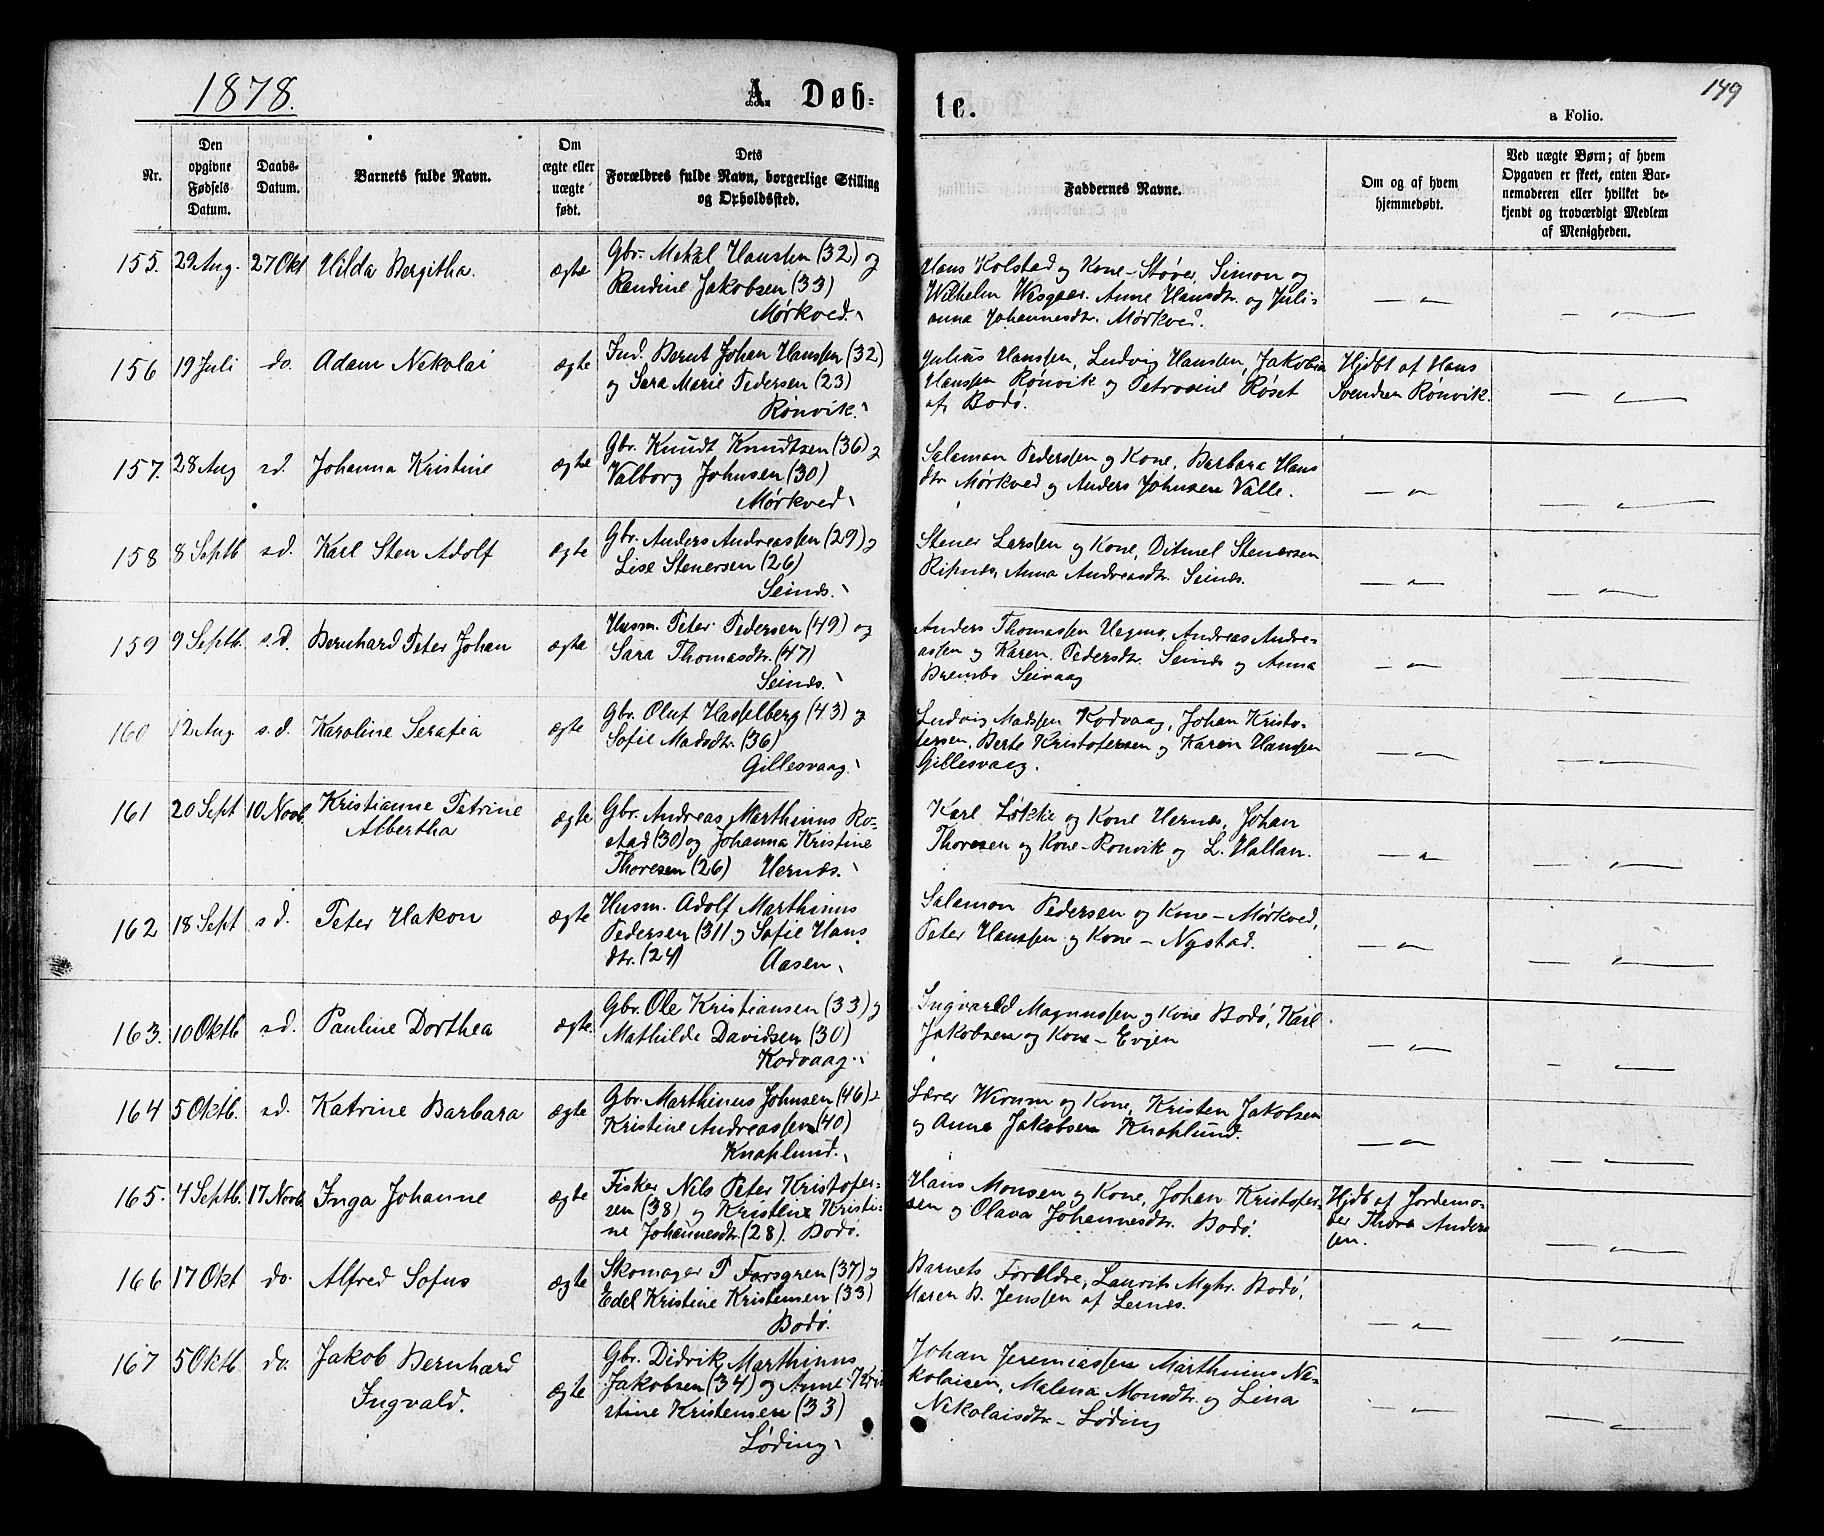 1878.
A. Døb-
te.
149
a Folio.
Nr.
Den opgivne Fødsels Datum.
Daabs-Datum.
Barnets fulde Navn.
Om ægte eller uægte født.
Dets Forældres fulde Navn, borgerlige Stilling og Opholdssted.
Faddernes Navne.
Om og af hvem hjemmedøbt.
Ved uægte Børn; af hvem Opgaven er skeet, enten Barnemoderen eller hvilket bekjendt og troværdigt Medlem af Menigheden.
155. 29 Aug. 27 Okt Hilda Bergitha. ægte
Gbr. Mekal Hanssen (32) og
Randine Jakobsen (33)
Mørkved.
Hans Kolstad og Kone - Støver, Simon og
Wilhelm Wesgaar. Anne Hansdtr. og Juli-
anna Johannesdtr. Mørkved.
156 19 Juli do. Adam Nikolai ægte
Ind. Bernt Johan Hanssen (32)
og Sara Marie Pedersen (23)
Rønvik.
Julius Hanssen, Ludvig Hanssen, Jakobia
Hanssen Rønvik og Petrosine Røset
af Bodø.
Hjdbt af Hans
Svendsen Rønvik.
157. 28 Aug s.d. Johanna Kristine ægte
Gbr. Knudt Knudtsen (36) og
Valborg Johnsen (30)
Mørkved
Salamon Pederssen og Kone, Barbara Hans
dtr Mørkved og Anders Johnsen Valle.
158 8 Septb s.d. Karl Sten Adolf ægte
Gbr. Anders Andreassen (29) og
Lise Stenersen (26)
Seines.
Stener Larssen og Kone, Ditmel Stenersen
Ripnes, Anna Andreasdtr. Seines.
159 9 Septb. s.d. Bernhard Peter Johan ægte
Husm. Peter Pedersen (49) og
Sara Thomasdtr. (47)
Seines.
Anders Thomassen Uegmo, Andreas Andre-
assen og Karen Pedersdtr. Seines og Anna
Brembo Seivaag
160 12 Aug s.d. Karoline Serafia ægte
Gbr. Oluf Hasselberg (43) og
Sofie Madsdtr. (36)
Gillesvaag.
Ludvig Madssen Kodvaag, Johan Kristo-
fersen, Berte Kristofersen og Karen Hanssen
Gillesvaag.
161 20 Sept 10 Novb. Kristianne Petrine
Albertha ægte
Gbr. Andreas Marthinus Ro-
stad (30) og Johanna Kristine
Thoresen (26) Hernes.
Karl Løkke og Kone Hernes, Johan
Thoresen og Kone - Rønvik og L. Hallan.
162 18 Sept s.d. Peter Hakon ægte
Husm. Adolf Marthinus
Pedersen (31) og Sofie Hans
dtr. (24) Aasen.
Salamon Pedersen og Kone - Mørkved,
Peter Hanssen og Kone - Nystad.
163. 10 Oktb s.d. Pauline Dorthea ægte.
Gbr. Ole Kristiansen (33) og
Mathilde Davidsen (30)
Kodvaag.
Ingvard Magnussen og Kone Bodø, Karl
Jakobsen og Kone - Evjen
164 5 Oktb. s.d. Katrine Barbara ægte
Gbr. Marthinus Johnsen (46) og
Kristine Andreassen (40)
Knaplund.
Lærer Wirum og Kone, Kristen Jakobsen
og Anna Jakobsen Knaplund.
165. 4 Septb. 17 Novb. Inga Johanne ægte
Fisker Nils Peter Kristofer-
sen (38) og Kristine Kristi-
ne Johannesdtr. (28). Bodø.
Hans Monsen og Kone, Johan Kristofer-
sen og Olava Johannesdtr. Bodø.
Hjdb af Jordemo-
der Thora Anders
sen.
166 17 Okt do. Alfred Sofus ægte
Skomager P Forsgren (37) og
Edel Kristine Kristensen (33)
Bodø.
Barnets Forældre, Laurits Myhr. Bodø,
Maren B. Jenssen af Lernes.
167 5 Oktb do. Jakob Bernhard
Ingvald. ægte
Gbr. Didrik Marthinus
Jakobsen (34) og Anne Kri-
stine Kristensen (33)
Løding
Johan Jeremiassen Marthinus Ni-
kolaisen, Malena Monsdtr. og Lina
Nikolaisdtr - Løding